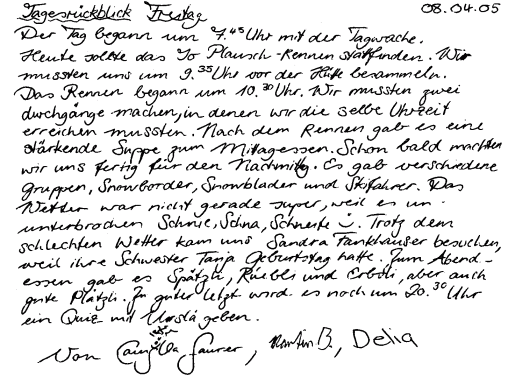 Tagesrückblick Freitag 08.04.05
Der Tag begann um 7.45 Uhr mit der Tagwache.
Heute sollte das Jo Plausch-Rennen stattfinden. Wir
mussten uns um 9.35 Uhr vor der Hütte besammeln.
Das Rennen begann um 10.30 Uhr. Wir mussten zwei
durchgänge machen, in denen wir die selbe Uhrzeit
erreichen mussten. Nach dem Rennen gab es eine
stärkende Suppe zum Mitagessen. Schon bald machten
wir uns fertig für den Nachmittag. Es gab verschiedene
gruppen, Snowborder, Snowblader und Skifahrer. Das
Wetter war nicht gerade super, weil es un-
unterbrochen Schnie, Schna, Schneite
Trotz dem
schlechten Wetter kam uns Sandra Fankhauser besuchen,
weil ihre Schwester Tanja Geburtstag hatte. Zum Abend-
essen gab es Spätzli, Rüebli und Erbsli, aber auch
gute Plätzli. Zu guter letzt wird es noch um 20.30 Uhr
ein Quiz mit Urslä geben.
Von Camilla, Martin B., Delia